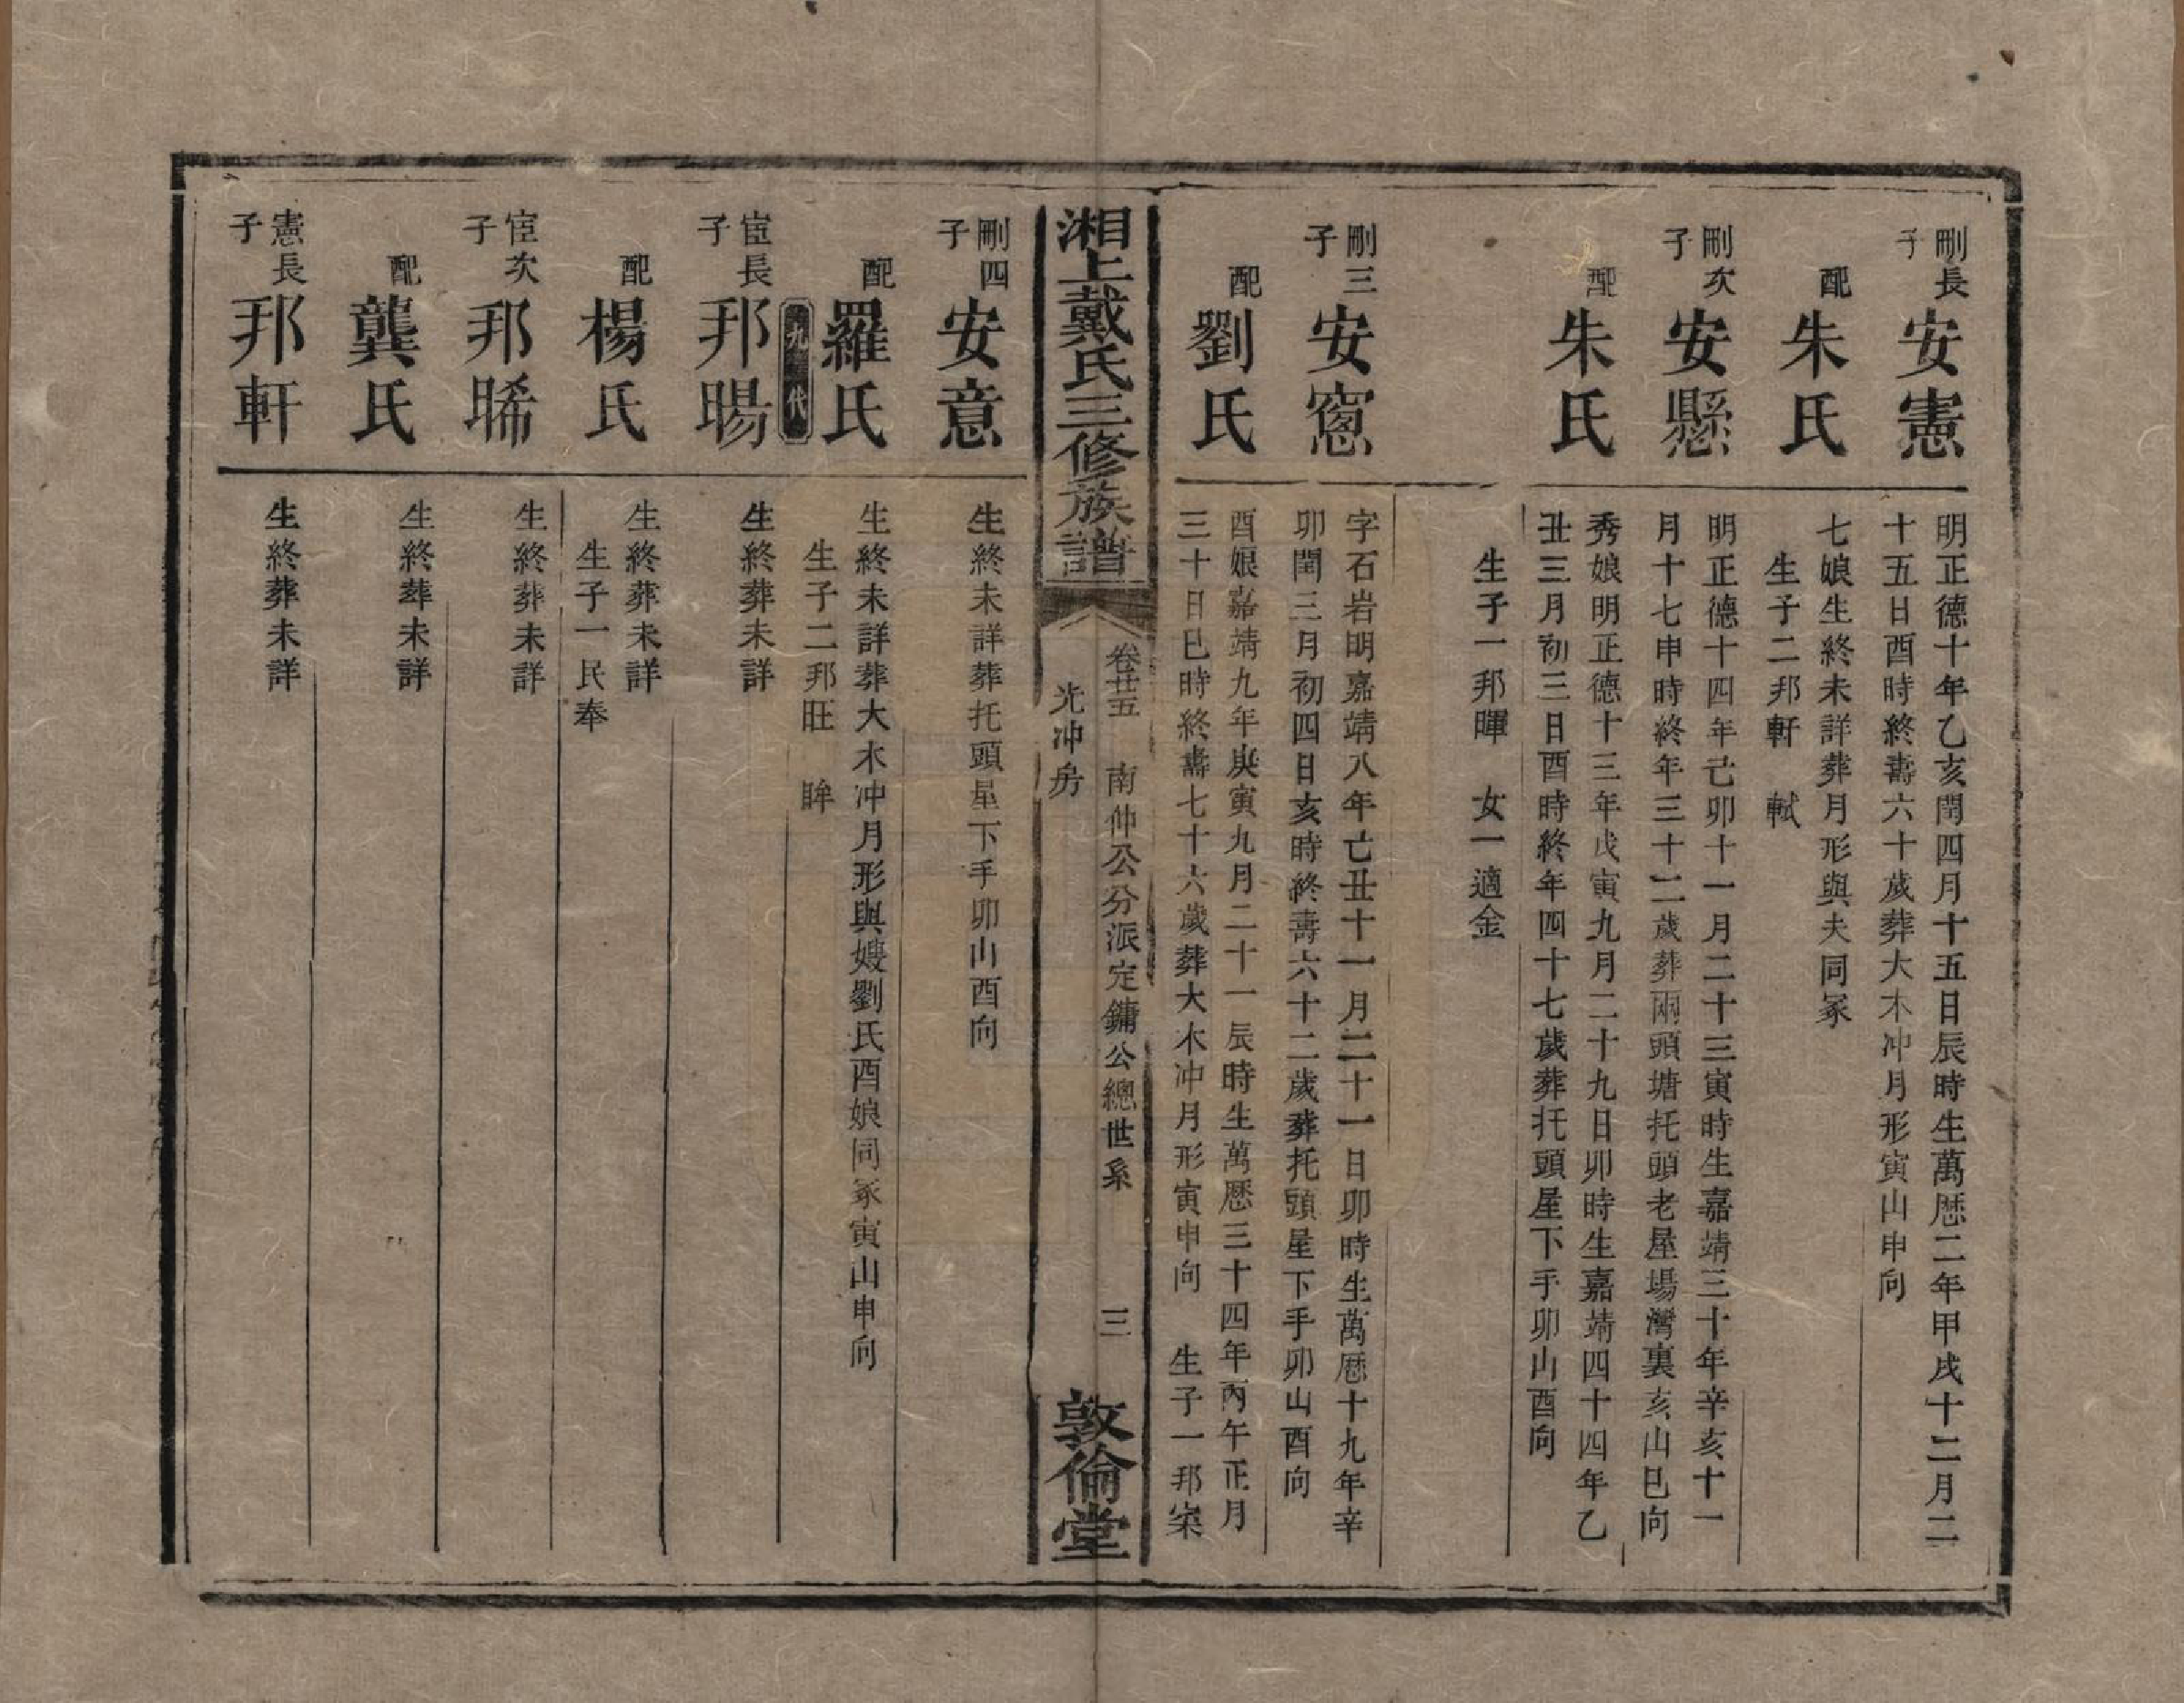 剛長子
安憲
明正德十年乙亥閏四月十五日辰時生萬歷二年甲戌十二月二
十五日酉時終壽六十歲葬大木冲月形寅山申向
配
朱氏
七娘生終未詳葬月形與夫同冢
生子二邦軒 軾
剛次子
安懸
明正德十四年己卯十一月二十三寅時生嘉靖三十年辛亥十一
月十七申時終年三十二歲葬兩頭塘托頭老屋場灣裏亥山巳向
配
朱氏
秀娘明正德十三年戊寅九月二十九日卯時生嘉靖四十四年乙
丑三月初三日酉時終年四十七歲葬托頭星下手卯山酉向
生子一邦暉 女一適金
剛三子
安窓
字石岩明嘉靖八年亡丑十一月二十一日卯時生萬歷十九年辛
卯閏三月初四日亥時終壽六十二歲葬托頭星下手卯山酉向
配
劉氏
酉娘嘉靖九年庚寅九月二十一辰時生萬歷三十四年丙午正月
三十日巳時終壽七十六歲葬大木冲月形寅申向 生子一邦寀
湘上戴氏三修族譜
卷廿五 南仲公分派定鏞公總世系 三
光冲房
敦倫堂
剛四子
安意
生終未詳葬托頭星下手卯山酉向
配
羅氏
生終未詳葬大木冲月形與嫂劉氏酉娘同冢寅山申向
生子二邦旺 眸
九代
宧長子
邦暘
生終葬未詳
配
楊氏
生終葬未詳
生子一民奉
宧次子
邦晞
生終葬未詳
配
龔氏
生終葬未詳
憲長子
邦軒
生終葬未詳